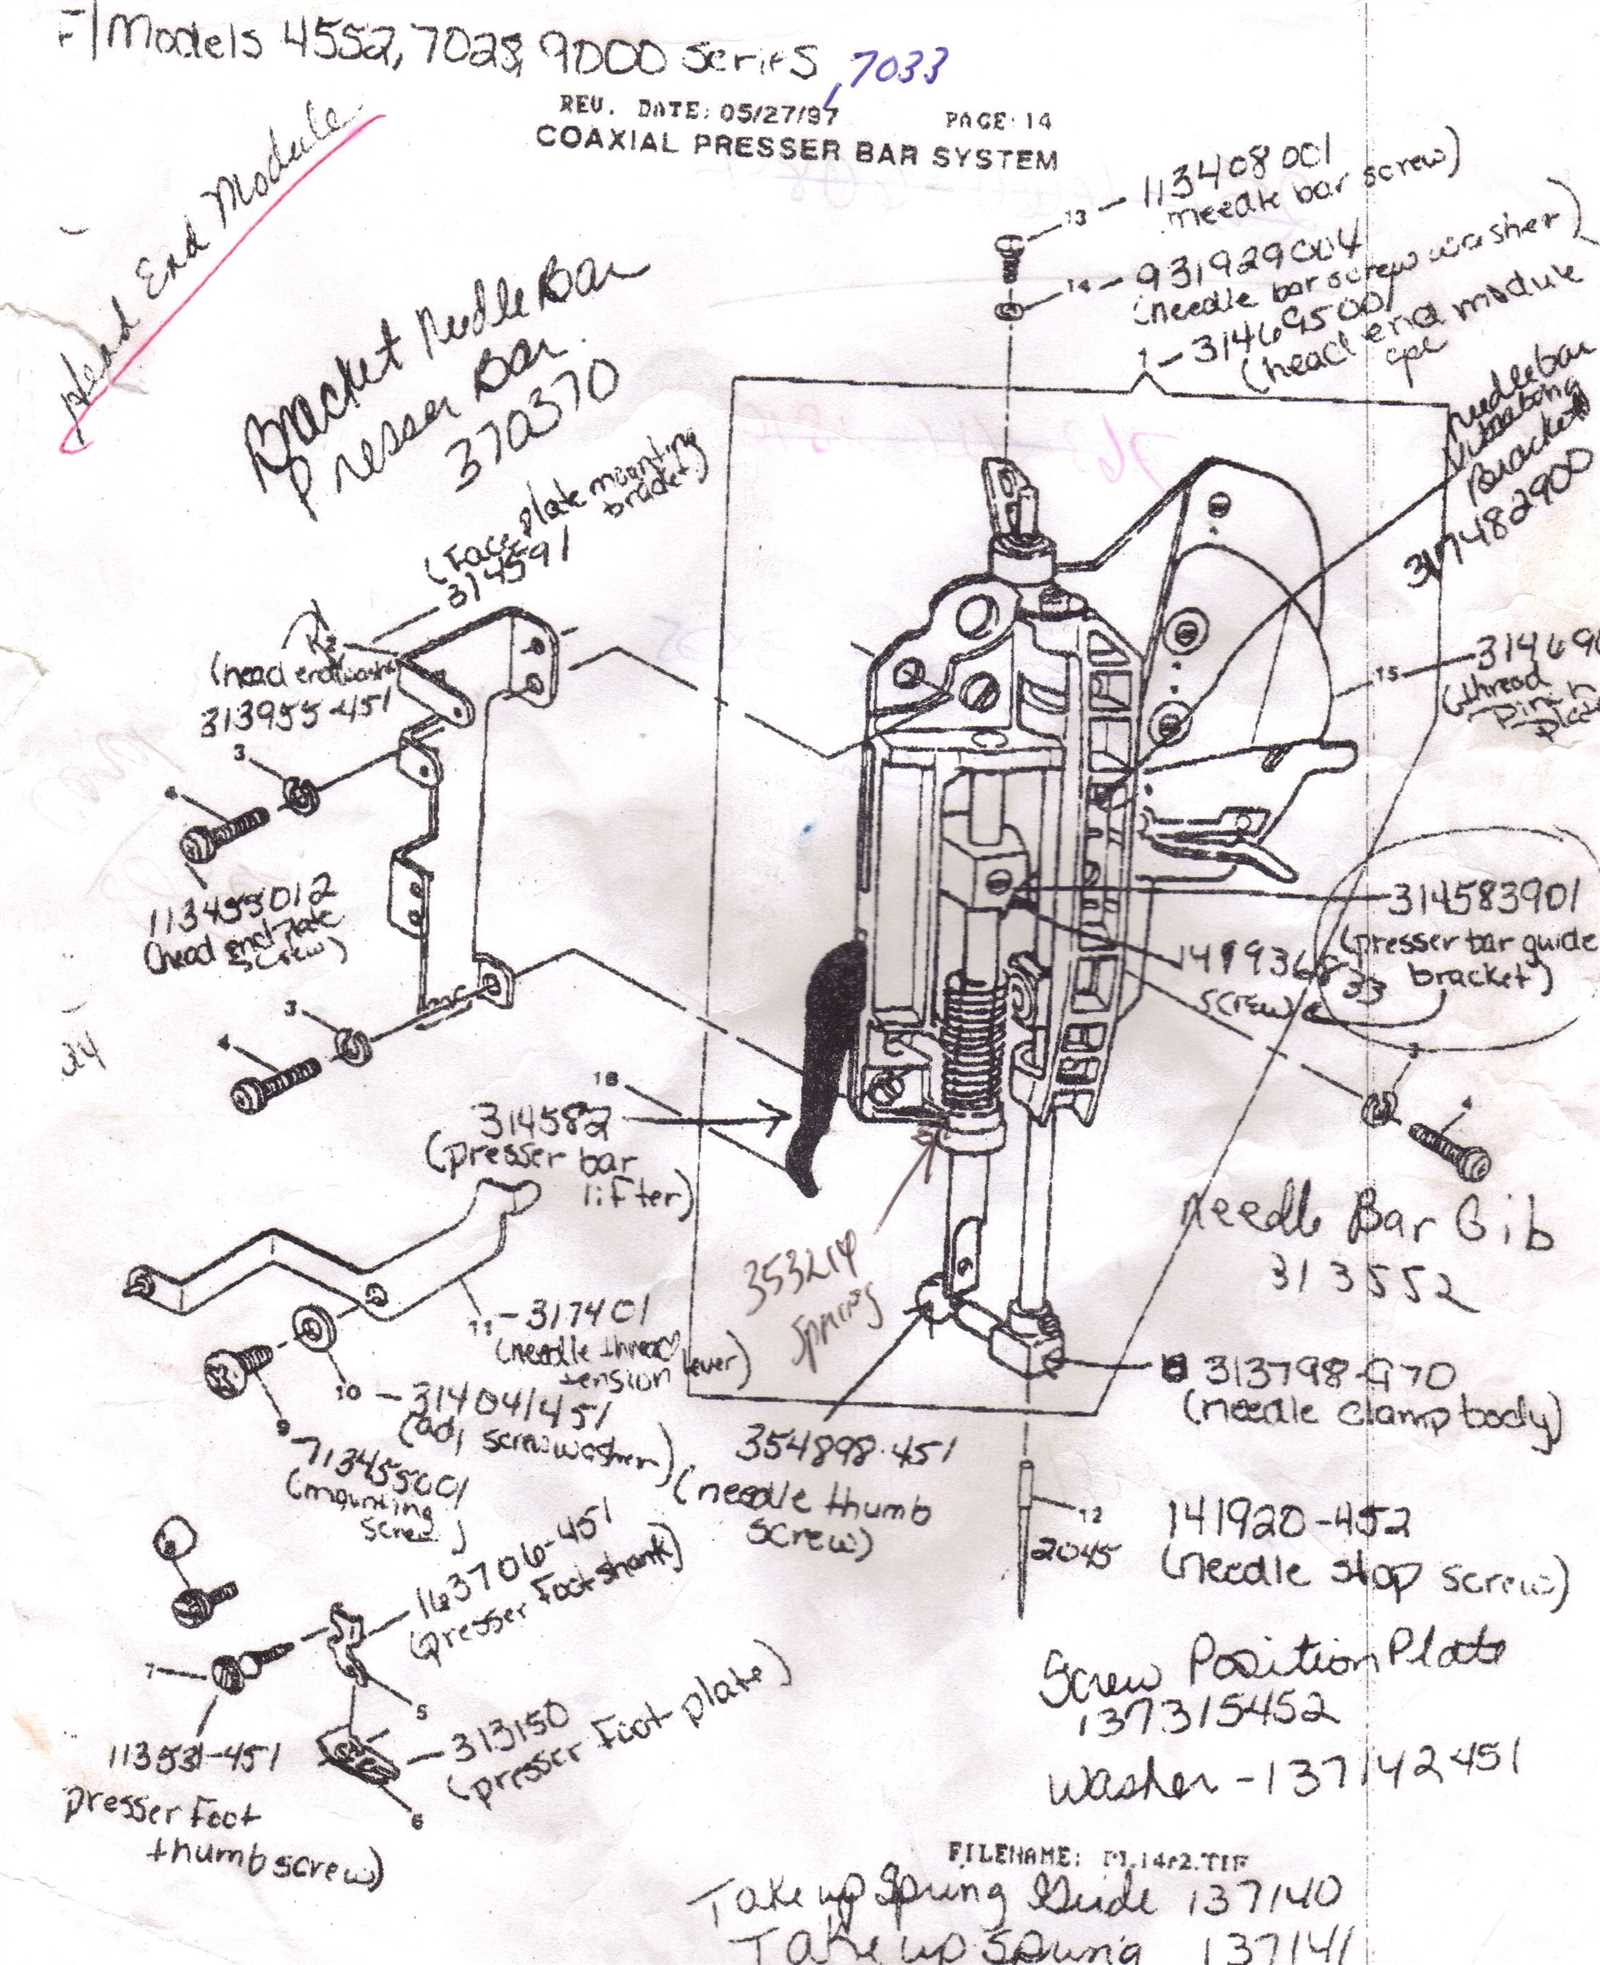 F/Models 4552, 7028, 9000 series, 7033
REV. DATE: 05/27/97 PAGE 14
COAXIAL PRESSER BAR SYSTEM
Head End Module
Bracket Needle Bar
Presser Bar
370370
13 - 113408001
needle bar screw)
14 - 931929004
(needle bar screw washer)
1 - 314695001
(head end module
cpl
needle bar
Bracket
317482900
(Face plate mounting
bracket)
314591
(head end washer
313955-451
3
4
113455012
(head end plate
screw)
3
4
24
15 - 31469
(thread
Pinch
plate
314583901
(presser bar guide
bracket)
1419368
33
screw)
3
4
18
314582
(presser bar
lifter)
353214
Spring
Needle Bar Gib
313552
11 - 317401
(needle thread
tension lever)
10 - 314041451
(adj screw washer)
9
713455001
(mounting
screw)
313798-G70
(needle clamp body)
354898-451
(needle thumb
screw)
12
2045
141920-452
(needle stop screw)
163706-451
(presser foot shank)
7
5
113531-451
presser foot
thumb screw)
313150
(presser foot plate)
6
Screw Position Plate
137315452
Washer - 137142451
FILENAME: P1.14r2.TIF
Take up Spring Guide 137140
Take up Spring 137141